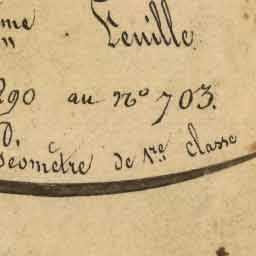 me Feuille
290 au nº 703.
Géomètre de 1re classe